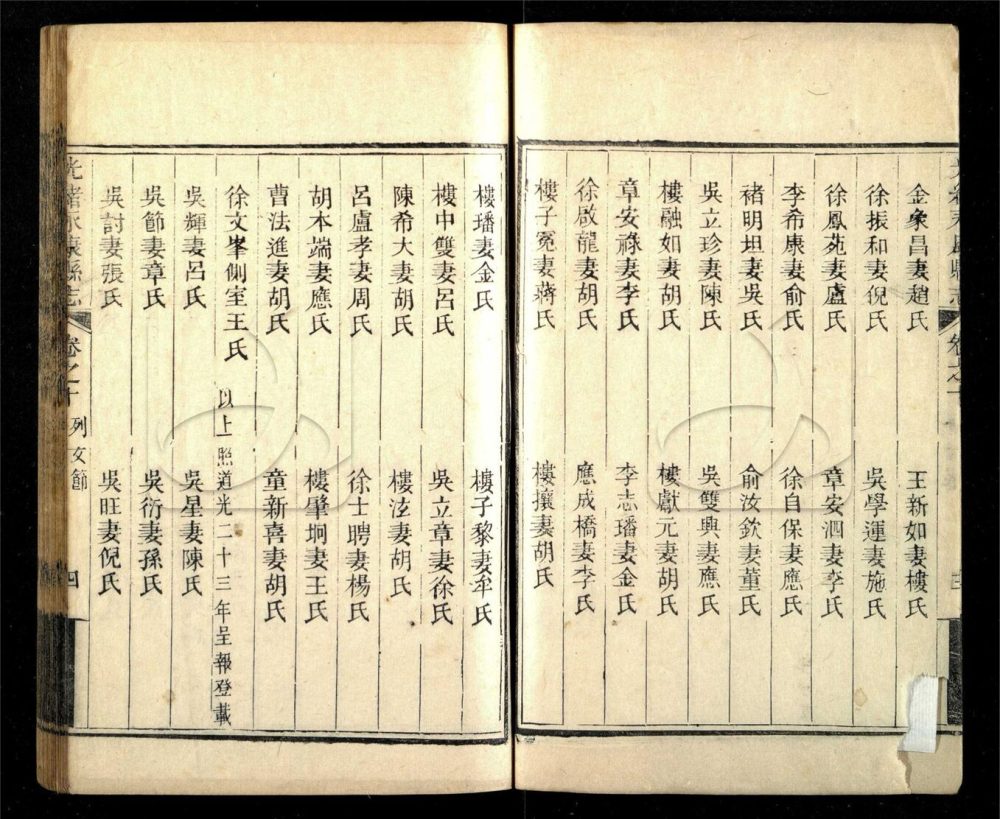 金象昌妻趙氏　王新如妻樓氏
徐振和妻倪氏　吳學運妻施氏
徐鳳苑妻盧氏　章安泗妻李氏
李希康妻俞氏　徐自保妻應氏
褚明坦妻吳氏　俞汝欽妻董氏
吳立珍妻陳氏　吳雙興妻應氏
樓融如妻胡氏　樓獻元妻胡氏
章安祿妻李氏　李志璠妻金氏
徐啟龍妻胡氏　應成橋妻李氏
樓子冕妻蔣氏　樓攘妻胡氏
樓璠妻金氏　樓子黎妻牟氏
樓中雙妻呂氏　吳立章妻徐氏
陳希大妻胡氏　樓泫妻胡氏
呂盧孝妻周氏　徐士聘妻楊氏
胡本端妻應氏　樓肇坰妻王氏
曹法進妻胡氏　童新喜妻胡氏
徐文峯側室王氏　以上照道光二十三年呈報登載
吳輝妻呂氏　吳星妻陳氏
吳節妻章氏　吳衍妻孫氏
吳討妻張氏　吳旺妻倪氏
光緒永康縣志　卷之十　列女節　四